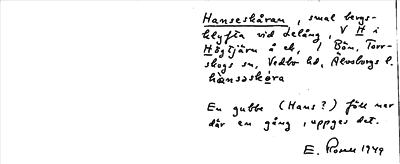 Hanseskåran, smal bergs-
klyfta vid Lelång, V H i
Högtjärn å ek, / Bön, Torr-
skogs sn, Vedbo hd, Älvsborgs l.
hansəskåra
En gubbe (Hans?) föll ner
där en gång, uppges det.
E. Rosell 1949